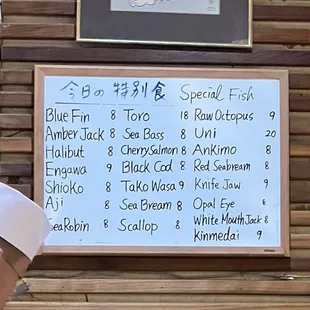 今日の特別食 Special Fish
Blue Fin 8 Toro 18 Raw Octopus 9
Amber Jack 8 Sea Bass 8 Uni 20
Halibut 8 Cherry Salmon 8 Ankimo 8
Engawa 9 Black Cod 8 Red Seabream 8
Shioko 8 Tako Wasa 9 Knife Jaw 9
Aji 8 Sea Bream 8 Opal Eye 8
Sea Robin 8 Scallop 8 White Mouth Jack 8
Kinmedai 9